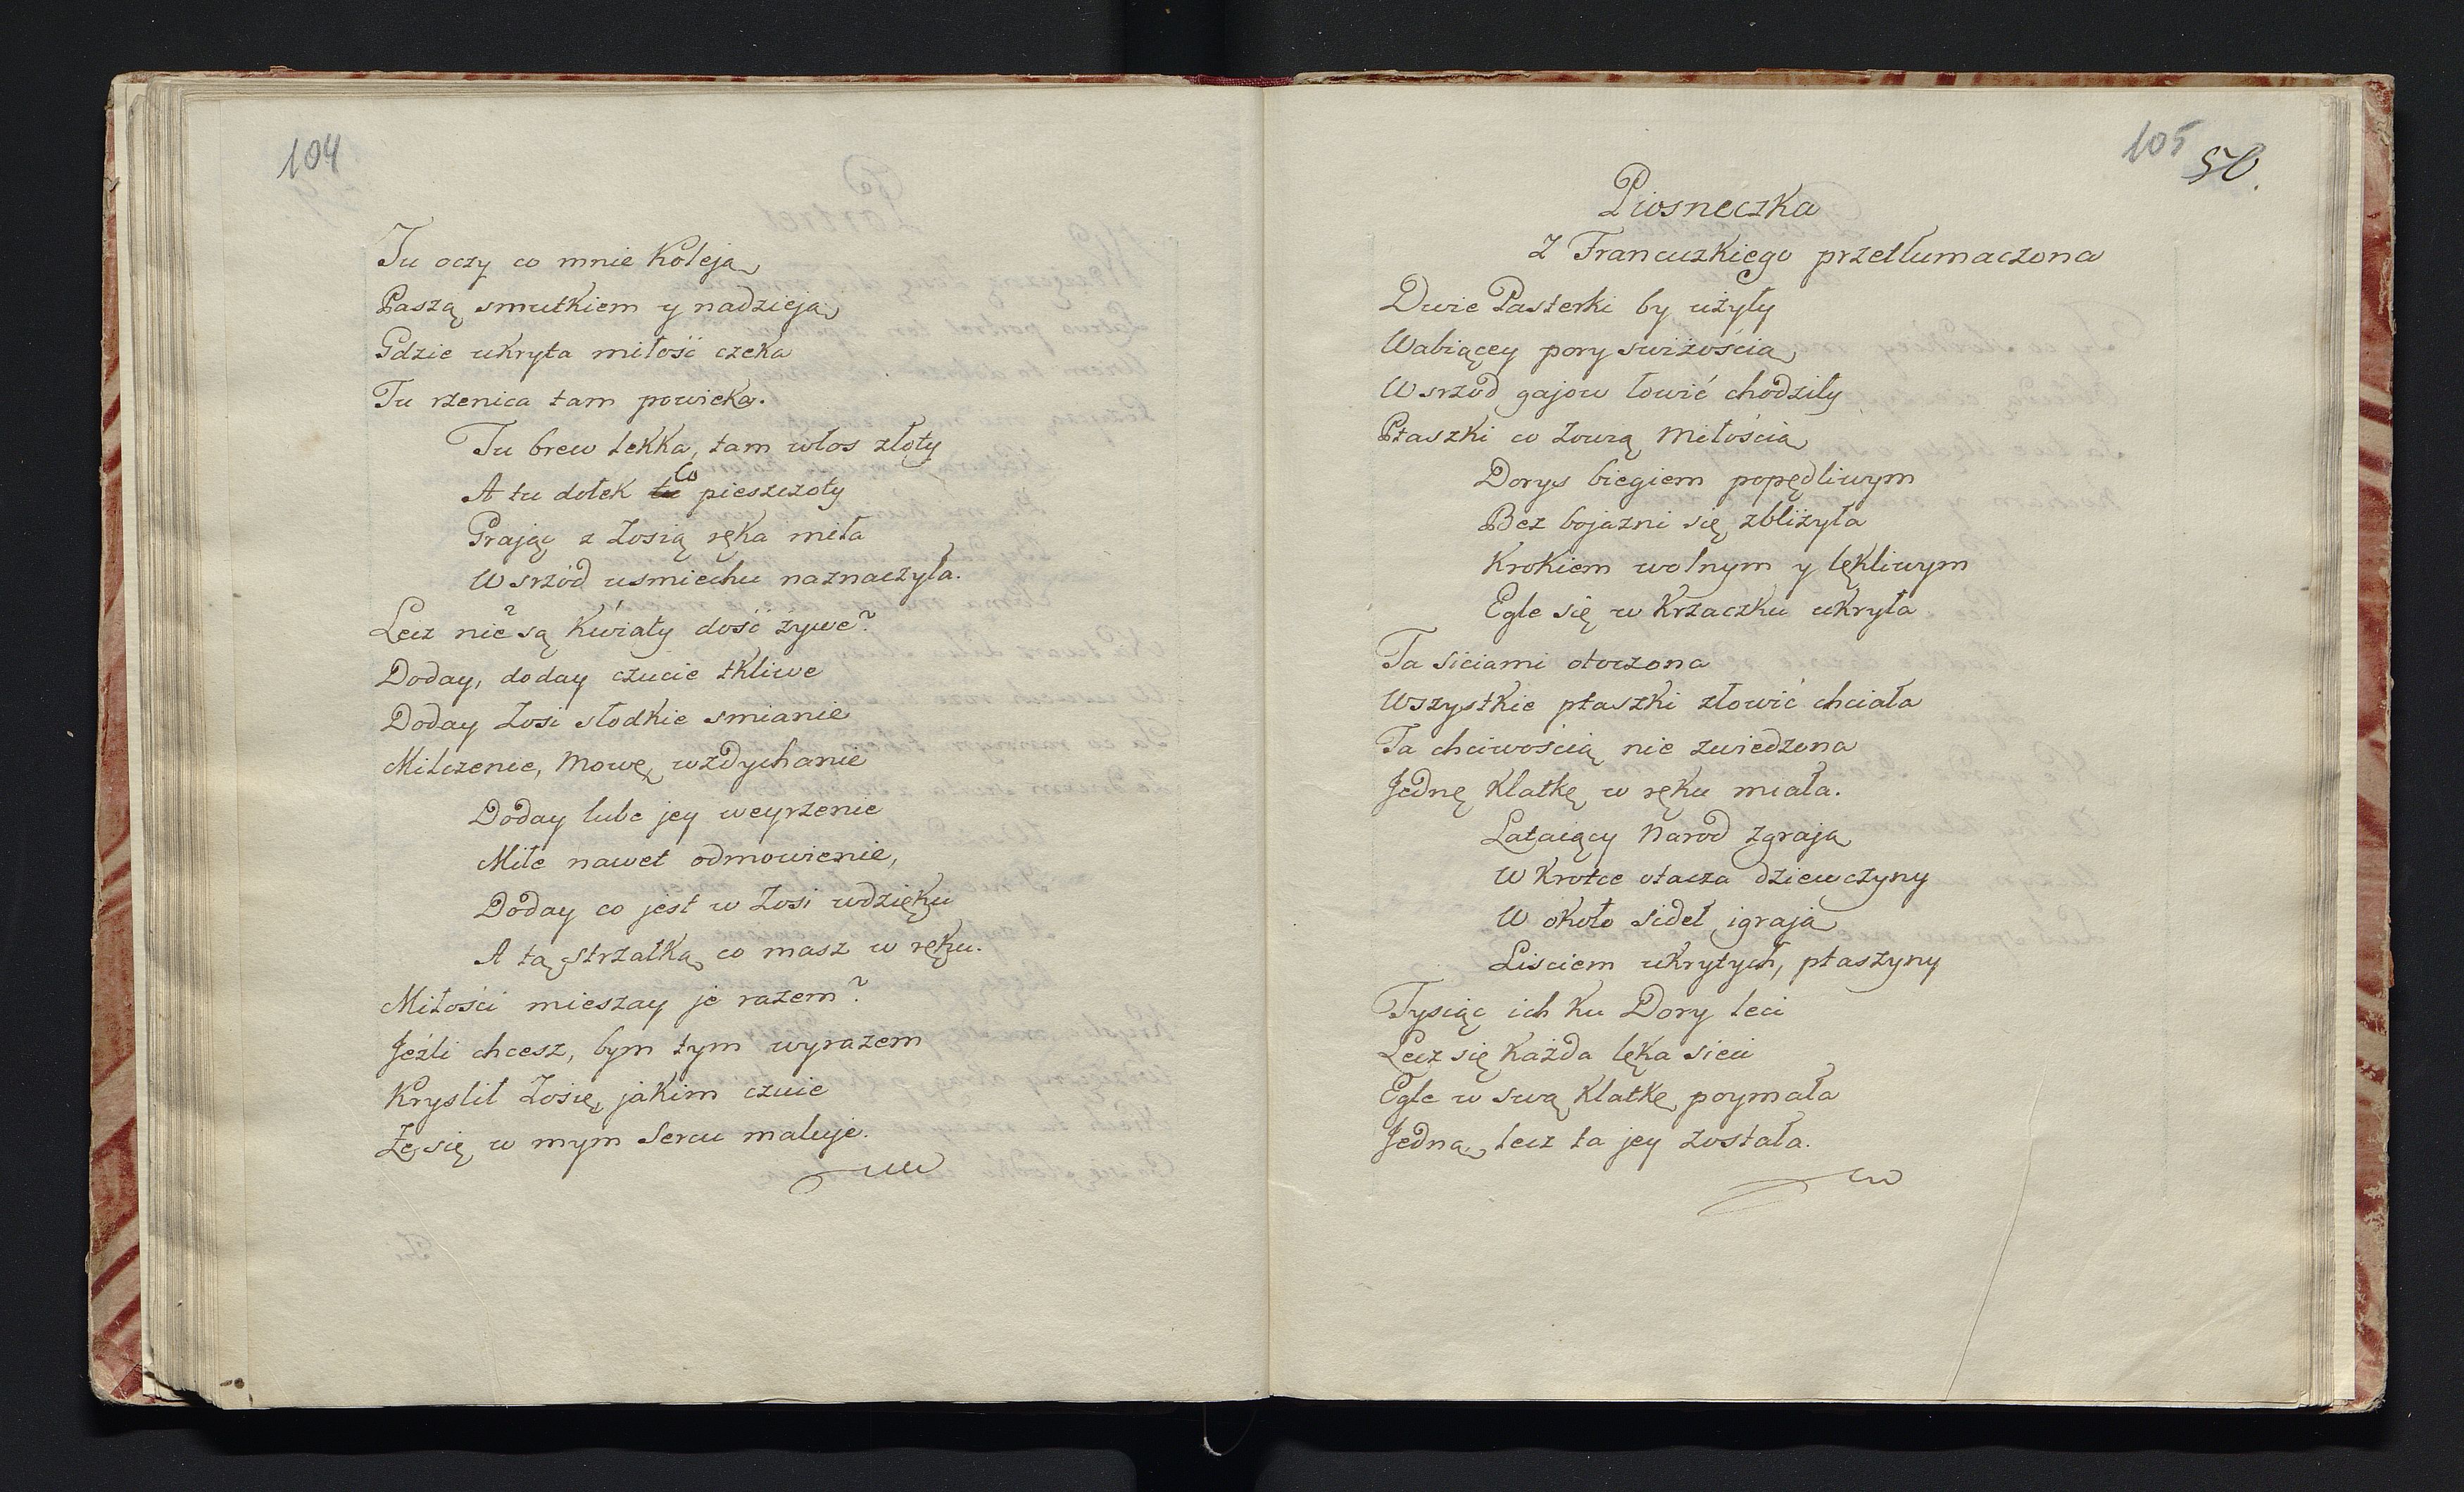 104
Tu oczy co mnie Koleją
Paszą smutkiem y nadzieją
Gdzie ukryta miłość czeka
Tu rzenica tam powieka.
Tu brew lekka, tam włos złoty
A tu dołek tu Co pieszczoty
Grając z Zosią ręka miła
W srzód usmiechu naznaczyła.
Lecz nie są Kwiaty dość żywe?
Doday, doday czucie tkliwe
Doday Zosi słodkie smianie
Milczenie, Mowę, wzdychanie
Doday lube jey weyrzenie
Miłe nawet odmowienie,
Doday co jest w Zosi wdzięku
A tą strzałką co masz w ręku.
Miłości mieszay je razem?
Jeżli chcesz, bym tym wyrazem
Kryslił Zosię, jakim czuie
Żę się w mym Sercu maluje.
105
50.
Piosneczka
Z Francuzkiego przetłumaczona
Dwie Pasterki by użyły
Wabiącey pory swiżością
W srzód gajow łowić chodziły
Ptaszki co zowią Miłością
Dorys biegiem popędliwym
Bez bojazni się zbliżyła
Krokiem wolnym y lękliwym
Egle się w Krzaczku ukryła
Ta siciami otoczona
Wszystkie ptaszki złowić chciała
Ta chciwością nie zwiedzona
Jednę Klatkę w ręku miała.
Lataiący Narod zgrają
W Krotce otacza dziewczyny
W około sideł igrają
Lisciem ukrytych, ptaszyny
Tysiąc ich ku Dory leci
Lecz się Każda lęka sieci
Egle w swą Klatkę poymała
Jedną, lecz ta jey została.